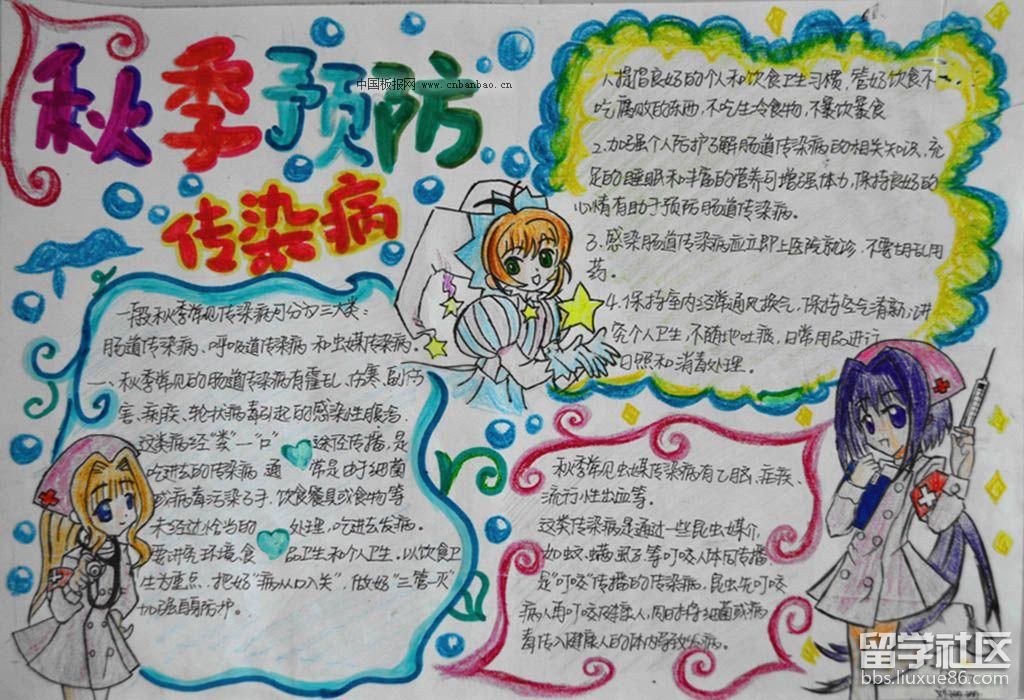 秋季预防
中国板报网 www.cnbanbao.cn
传染病
人提倡良好的个人和饮食卫生习惯,管好饮食不
吃腐败的东西,不吃生冷食物,不暴饮暴食
2.加强个人防护了解肠道传染病的相关知识,充
足的睡眠和丰富的营养可增强体力,保持良好的
心情有助于预防肠道传染病。
3.感染肠道传染病应立即上医院就诊,不要胡乱用
药。
4.保持室内经常通风换气,保持空气清新,讲
究个人卫生,不随地吐痰,日常用品进行
日照和消毒处理。
一般秋季常见传染病可分为三大类:
肠道传染病、呼吸道传染病和虫媒传染病
一、秋季常见的肠道传染病有霍乱,伤寒,副伤
害,痢疾、轮状病毒引起的感染性腹泻。
这类病经"粪"一"口"途径传播,是
吃进去的传染病 通常是由于细菌
或病毒污染了手,饮食餐具或食物等
未经过恰当的处理,吃进去发病。
要讲究环境,食品卫生和个人卫生.以饮食卫
生为重点,把好"病从口入关",做好"三管一灭"
加强自身防护。
秋季常见虫媒传染病有乙脑、疟疾、
流行性出血等。
这类传染病是通过一些昆虫媒介,
如蚊、螨、虱子等叮咬人体而传播
是"叮咬"传播的传染病,昆虫先叮咬
病人再叮咬健康人,同时将细菌或病
毒传入健康人的体内导致发病。
留学社区
bbs.liuxue86.com